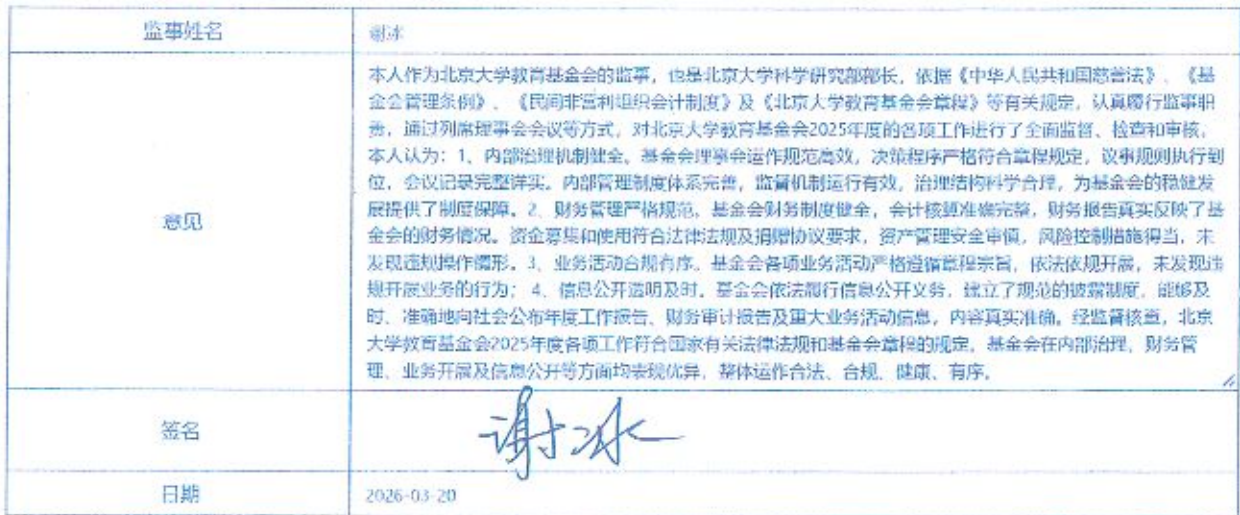 监事姓名 谢冰
本人作为北京大学教育基金会的监事，也是北京大学科学研究部部长，依据《中华人民共和国慈善法》、《基
金会管理条例》、《民间非营利组织会计制度》及《北京大学教育基金会章程》等有关规定，认真履行监事职
责，通过列席理事会会议等方式，对北京大学教育基金会2025年度的各项工作进行了全面监督、检查和审核。
本人认为：1、内部治理机制健全。基金会理事会运作规范高效，决策程序严格符合章程规定，议事规则执行到
位，会议记录完整详实。内部管理制度体系完善，监督机制运行有效，治理结构科学合理，为基金会的稳健发
展提供了制度保障。2、财务管理严格规范。基金会财务制度健全，会计核算准确完整，财务报告真实反映了基
意见
金会的财务情况。资金募集和使用符合法律法规及捐赠协议要求，资产管理安全审慎，风险控制措施得当，未
发现违规操作情形。3、业务活动合规有序。基金会各项业务活动严格遵循章程宗旨，依法依规开展，未发现违
规开展业务的行为；4、信息公开透明及时。基金会依法履行信息公开义务，建立了规范的披露制度，能够及
时、准确地向社会公布年度工作报告、财务审计报告及重大业务活动信息，内容真实准确。经监督核查，北京
大学教育基金会2025年度各项工作符合国家有关法律法规和基金会章程的规定，基金会在内部治理，财务管
理、业务开展及信息公开等方面均表现优异，整体运作合法、合规、健康、有序。
签名 谢冰
日期 2026-03-20